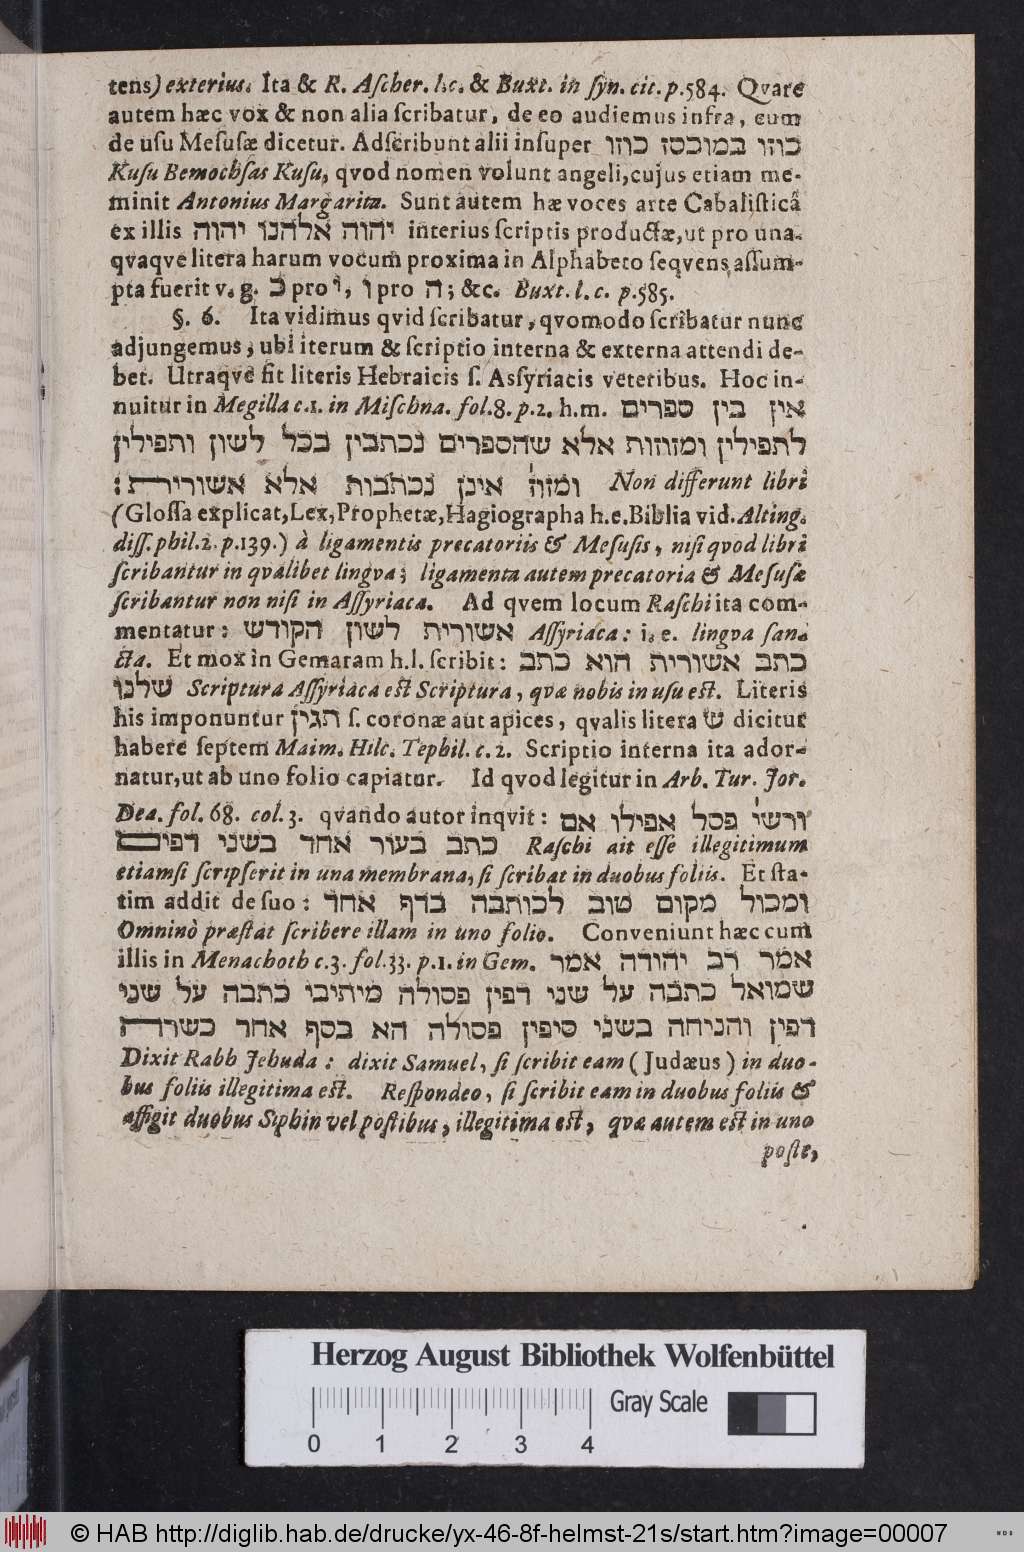 tens) exterius. Ita & R. Aſcher. l.c. & Buxt. in ſyn. cit. p. 584. Qvare
autem hæc vox & non alia ſcribatur, de eo audiemus infra, cum
de uſu Meſuſæ dicetur. Adſcribunt alii inſuper כוזו במוכסז כוזו
Kuſu Bemochſas Kuſu, qvod nomen volunt angeli, cujus etiam me-
minit Antonius Margarita. Sunt autem hæ voces arte Cabaliſticâ
ex illis יהוה אלהנו יהוה interius ſcriptis productæ, ut pro una-
qvaqve litera harum vocum proxima in Alphabeto ſeqvens aſſum-
pta fuerit v. g. כ pro י, ו pro ה; &c. Buxt. l. c. p. 585.
§. 6. Ita vidimus qvid ſcribatur, qvomodo ſcribatur nunc
adjungemus, ubi iterum & ſcriptio interna & externa attendi de-
bet. Utraqve fit literis Hebraicis ſ. Aſſyriacis veteribus. Hoc in-
nuitur in Megilla c.1. in Miſchna. fol. 8. p. 2. h.m. אין בין ספרים
לתפילין ומזוזות אלא שהספרים נכתבין בכל לשון ותפילין
ומזוז' אינן נכתבות אלא אשורירת: Non differunt libri
(Gloſſa explicat, Lex, Prophetæ, Hagiographa h.e. Biblia vid. Alting.
diſſ. phil. 2. p. 139.) à ligamentis precatoriis & Meſuſis, niſi qvod libri
ſcribantur in qvalibet lingva; ligamenta autem precatoria & Meſuſæ
ſcribantur non niſi in Aſſyriaca. Ad qvem locum Raſchi ita com-
mentatur: אשורית לשון הקודש Aſſyriaca: i. e. lingva ſan-
cta. Et mox in Gemaram h.l. ſcribit: כתב אשורית הוא כתב
שלנו Scriptura Aſſyriaca eſt Scriptura, qvæ nobis in uſu eſt. Literis
his imponuntur תגין ſ. coronæ aut apices, qvalis litera ש dicitur
habere ſeptem Maim. Hilc. Tephil. c. 2. Scriptio interna ita ador-
natur, ut ab uno folio capiatur. Id qvod legitur in Arb. Tur. Jor.
Dea. fol. 68. col. 3. qvando autor inqvit: ורשי' פסל אפילו אם
כתב בעור אחד בשני דפים Raſchi ait eſſe illegitimum
etiamſi ſcripſerit in una membrana, ſi ſcribat in duobus foliis. Et ſta-
tim addit de ſuo: ומכול מקום טוב לכותבה בדף אחד
Omninò præſtat ſcribere illam in uno folio. Conveniunt hæc cum
illis in Menachoth c. 3. fol. 33. p. 1. in Gem. אמר רב יהודה אמר
שמואל כתבה על שני דפין פסולה מיתיבי כתבה על שני
דפין והניחה בשני סיפין פסולה הא בסף אחד כשרה
Dixit Rabb Jehuda: dixit Samuel, ſi ſcribit eam (Judæus) in duo-
bus foliis illegitima eſt. Reſpondeo, ſi ſcribit eam in duobus foliis &
affigit duobus Siphin vel poſtibus, illegitima eſt, qvæ autem eſt in uno
poſte,
Herzog August Bibliothek Wolfenbüttel
Gray Scale
0 1 2 3 4
© HAB http://diglib.hab.de/drucke/yx-46-8f-helmst-21s/start.htm?image=00007